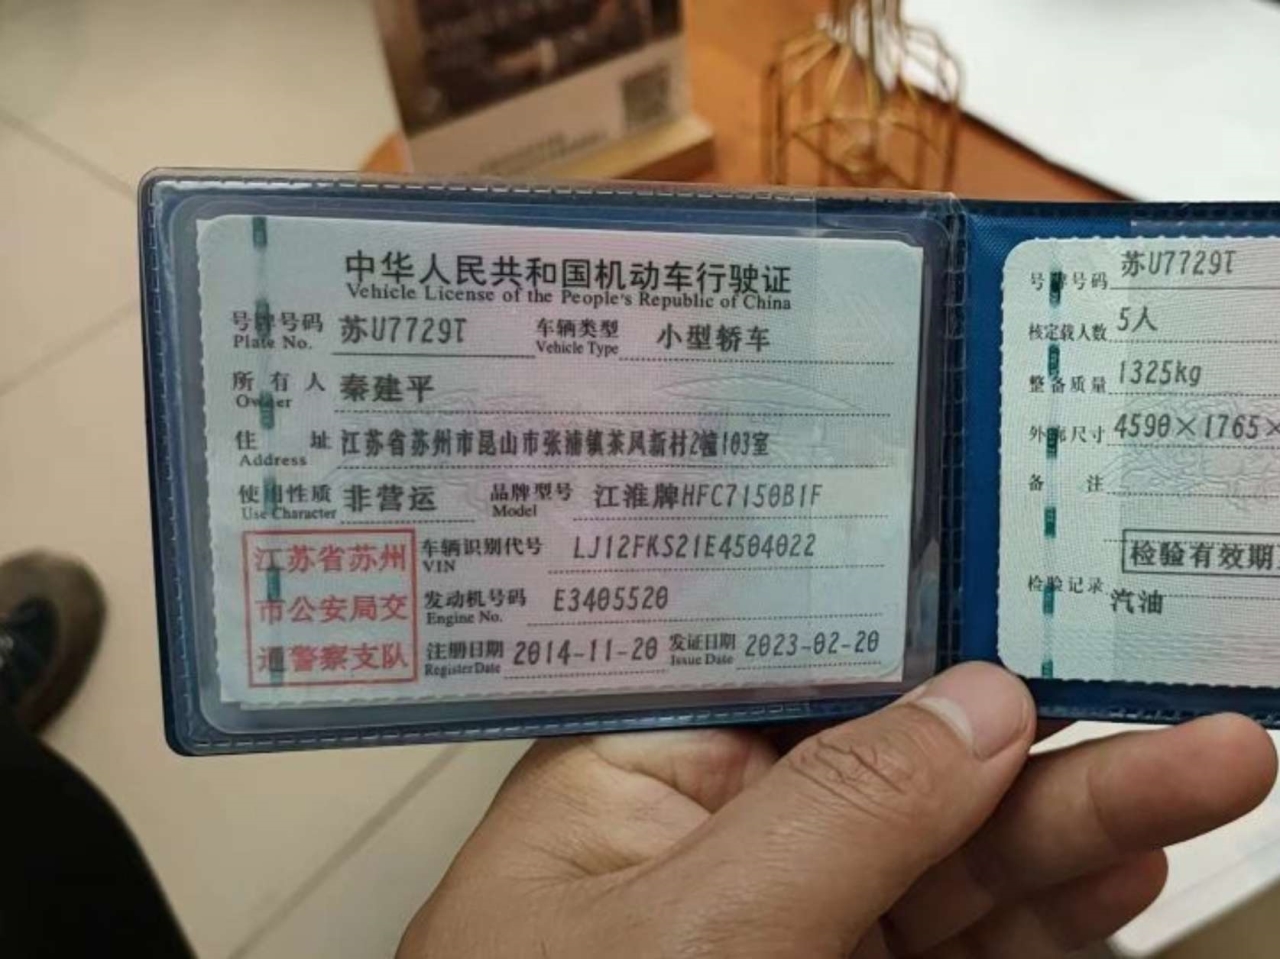 中华人民共和国机动车行驶证
Vehicle License of the People's Republic of China
号牌号码 苏U7729T 车辆类型 小型轿车
Plate No. Vehicle Type
所有人 秦建平
Owner
住址 江苏省苏州市昆山市张浦镇茶风新村2幢103室
Address
使用性质 非营运 品牌型号 江淮牌HFC7150B1F
Use Character Model
江苏省苏州
市公安局交
通警察支队
车辆识别代号 LJ12FKS21E4504022
VIN
发动机号码 E3405520
Engine No.
注册日期 2014-11-20 发证日期 2023-02-20
Register Date Issue Date
号牌号码 苏U7729T
核定载人数 5人
整备质量 1325kg
外廓尺寸 4590×1765×
备注
检验有效期
检验记录
汽油